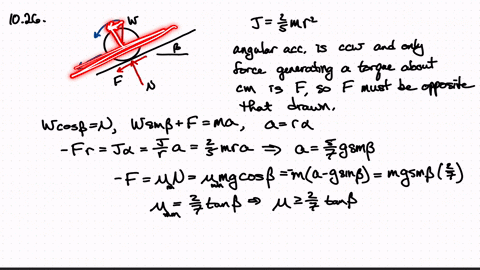 10.26.
W
β
F
N
J = 2/5 mr²
angular acc. is ccw and only
force generating a torque about
cm is F, so F must be opposite
that drawn.
Wcosβ = N, Wsinβ + F = ma, a = rα
-Fr = Jα = J/r a = 2/5 mra ⇒ a = 5/7 gsinβ
-F = μₘN = μₘᵢₙmgcosβ = -m(a-gsinβ) = mgsinβ(2/7)
μₘᵢₙ = 2/7 tanβ ⇒ μ ≥ 2/7 tanβ